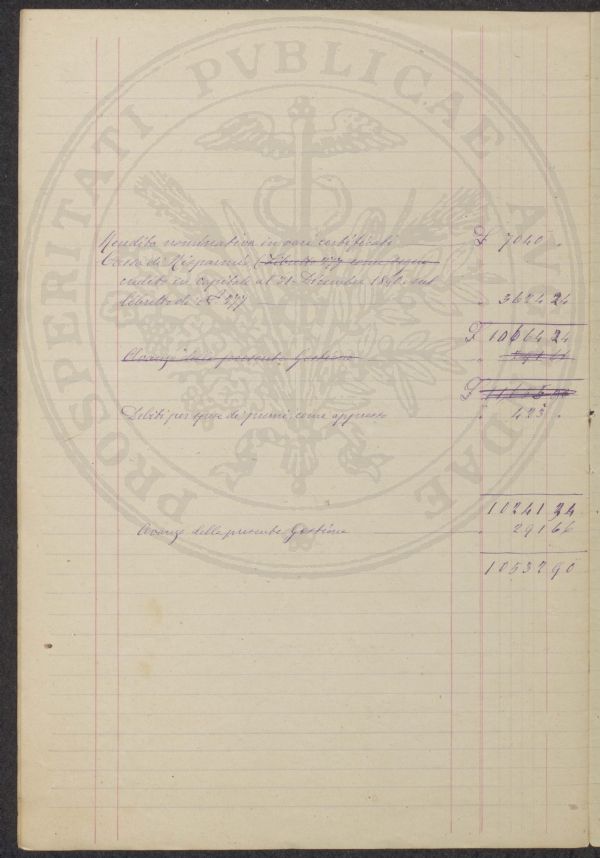 PROSPERITATI PVBLICAE AVGENDAE
Rendita nominativa in vari certificati £ 7040 "
Cassa di Risparmio (Libretto 277 come segue
credito in capitale al 31 Dicembre 1890 sul
libretto di N° 277 " 3624 24
£ 10664 24
Avanzo della presente Gestione " 291 66
£
Debiti per spese di premi come appresso " 423 "
10241 24
Avanzo della presente Gestione " 291 66
10532 90